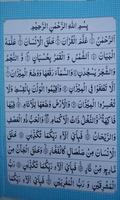 بِسْمِ اللَّهِ الرَّحْمَٰنِ الرَّحِيمِ
الرَّحْمَٰنُ عَلَّمَ الْقُرْآنَ خَلَقَ الْإِنسَانَ عَلَّمَهُ
الْبَيَانَ الشَّمْسُ وَالْقَمَرُ بِحُسْبَانٍ وَالنَّجْمُ
وَالشَّجَرُ يَسْجُدَانِ وَالسَّمَاءَ رَفَعَهَا وَوَضَعَ الْمِيزَانَ
أَلَّا تَطْغَوْا فِي الْمِيزَانِ وَأَقِيمُوا الْوَزْنَ بِالْقِسْطِ وَلَا تُخْسِرُوا
الْمِيزَانَ وَالْأَرْضَ وَضَعَهَا لِلْأَنَامِ فِيهَا فَاكِهَةٌ
وَالنَّخْلُ ذَاتُ الْأَكْمَامِ وَالْحَبُّ ذُو الْعَصْفِ
وَالرَّيْحَانُ فَبِأَيِّ آلَاءِ رَبِّكُمَا تُكَذِّبَانِ خَلَقَ
الْإِنسَانَ مِن صَلْصَالٍ كَالْفَخَّارِ وَخَلَقَ الْجَانَّ مِن
مَّارِجٍ مِّن نَّارٍ فَبِأَيِّ آلَاءِ رَبِّكُمَا تُكَذِّبَانِ رَبُّ
الْمَشْرِقَيْنِ وَرَبُّ الْمَغْرِبَيْنِ فَبِأَيِّ آلَاءِ رَبِّكُمَا